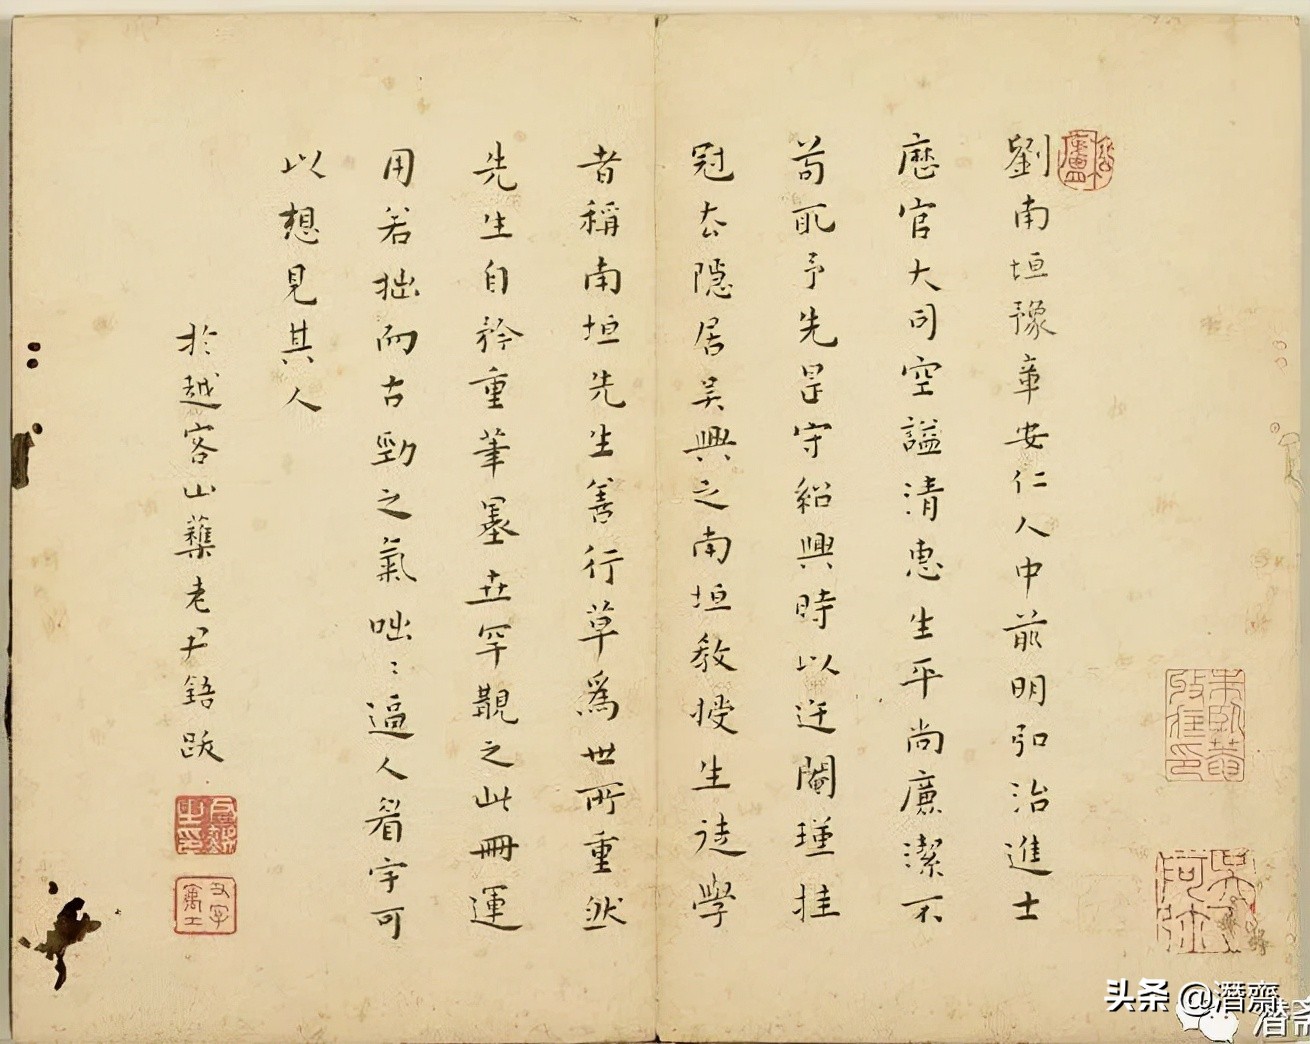 劉南垣豫章安仁人中前明弘治進士
歷官大司空謚清惠生平尚廉潔不
苟取予先是守紹興時以迕閹瑾挂
冠去隱居吴興之南垣教授生徒學
者稱南垣先生善行草爲世所重然
先生自矜重筆墨世罕覯之此冊運
用若拙而古勁之氣咄〻逼人着字可
以想見其人
於越客山蘂老尹鋙跋
头条 @潛齋
潜斋